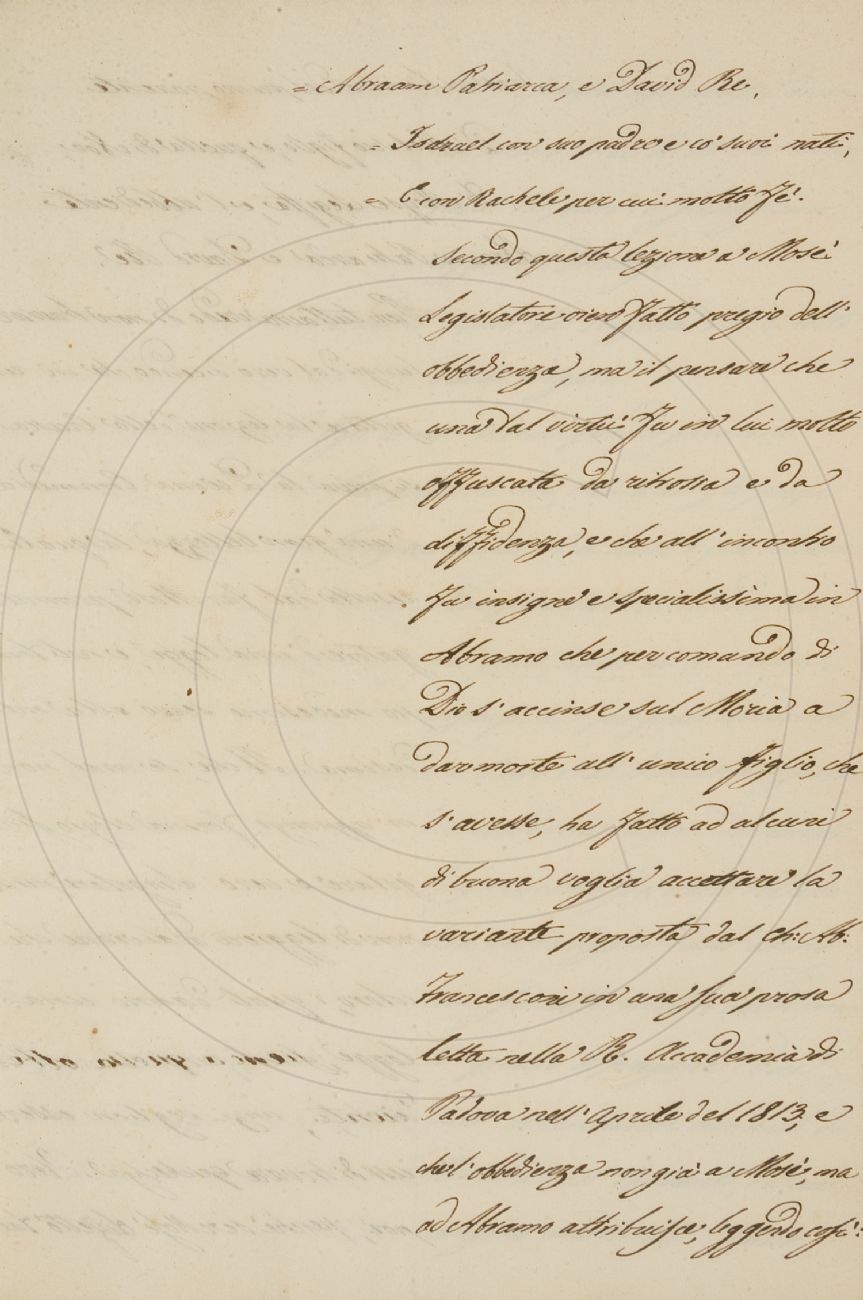 = Abraam Patriarca, e David Re,
= Isdrael con suo padre e co' suoi nati,
= E con Rachele per cui molto fè.
Secondo questa lezione a Mosè
Legislatore viene fatto pregio dell'
obbedienza, ma il pensare che
una tal virtù fu in lui molto
offuscata da ritrosia e da
diffidenza, e che all'incontro
fu insigne e specialissima in
Abramo che per comando di
Dio s'accinse sul Moria a
dar morte all'unico figlio, che
s'avesse, ha fatto ad alcuni
di buona voglia accettare la
variante proposta dal ch: Ab:
Francesconi in una sua prosa
letta nella R. Accademia di
Padova nell'Aprile del 1813, e
che l'obbedienza non già a Mosè, ma
ad Abramo attribuisce, leggendo così: